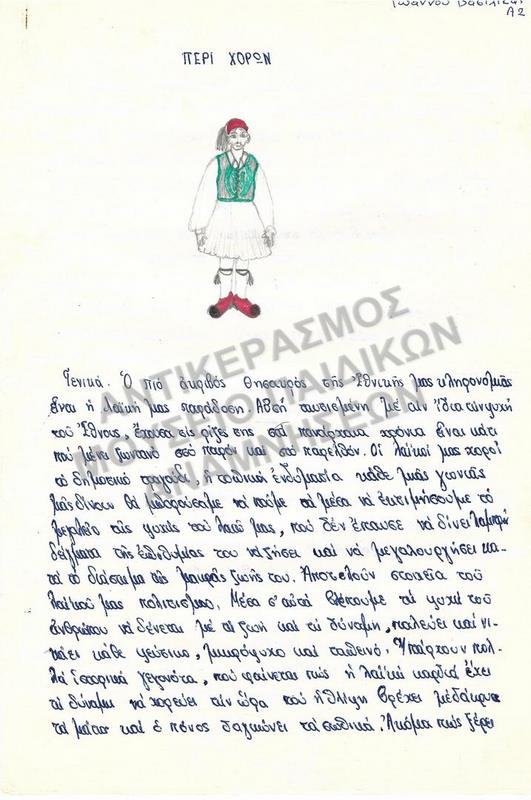 Ιωάννου Βασιλική
Α2
ΠΕΡΙ ΧΟΡΩΝ
ΑΝΤΙΚΕΡΑΣΜΟΣ
ΜΟΥΣΕΙΟ ΠΑΙΔΙΚΩΝ
ΑΝΑΜΝΗΣΕΩΝ
Γενικά. Ὁ πιό ἀκριβός θησαυρός τῆς Ἐθνικῆς μας κληρονομιᾶς
εἶναι ἡ λαϊκή μας παράδοση. Αὐτή ταυτισμένη μέ τήν ἴδια τήν ψυχή
τοῦ Ἔθνους, ἔχουσα τίς ρίζες της στά πανάρχαια χρόνια εἶναι κάτι
πού μένει ζωντανό στό παρόν καί στό παρελθόν. Οἱ λαϊκοί μας χοροί
τό δημοτικό τραγούδι, ἡ τοπική ἐνδυμασία κάθε μιᾶς γωνιᾶς
μᾶς δίνουν θά μπορούσαμε νά ποῦμε τά μέσα νά ἐκτιμήσουμε τό
μεγαλεῖο τῆς ψυχῆς τοῦ λαοῦ μας, πού δέν ἔπαυσε νά δίνει λαμπρά
δείγματα τῆς ἐπιθυμίας του νά ζήσει καί νά μεγαλουργήσει κα-
τά τό διάστημα τῆς μακρᾶς ζωῆς του. Ἀποτελοῦν στοιχεῖα τοῦ
λαϊκοῦ μας πολιτισμοῦ. Μέσα σ' αὐτά βλέπουμε τή ψυχή τοῦ
ἀνθρώπου νά δένεται μέ τή ζωή καί τή δύναμη, παλεύει καί νι-
κάει κάθε ψεύτικο, μικρόψυχο καί ταπεινό. Ὑπάρχουν πολ-
λά ἱστορικά γεγονότα, πού φαίνεται πώς ἡ λαϊκή καρδιά ἔχει
τή δύναμη νά χορεύει τήν ὥρα πού ἡ θλίψη βρέχει μέ δάκρυα
τά μάτια καί ὁ πόνος δαγκώνει τά σωθικά. Ἀκόμα πώς ξέρει